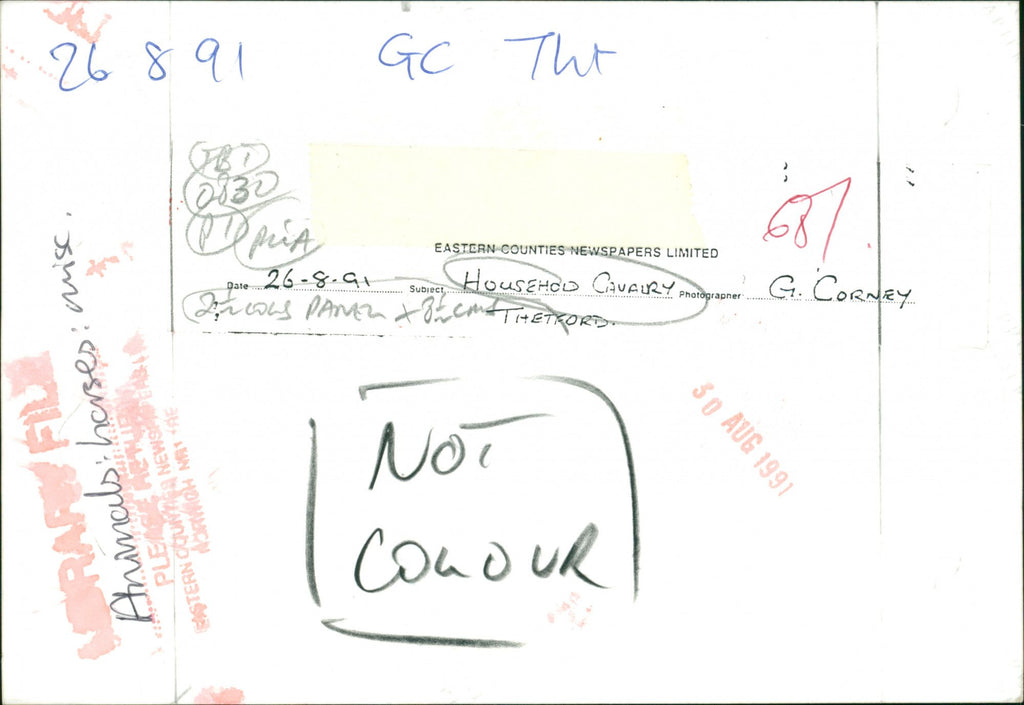 26 8 91 GC Tht
0830
P1
68%
EASTERN COUNTIES NEWSPAPERS LIMITED
Date 26-8-91 Subject HOUSEHOLD CAVALRY Photographer G. CORNEY
2½ COLS PANEL x 8½ CMS THETFORD.
NOT
COLOUR
30 AUG 1991
Animals: horses: misc.
LIBRARY FILE
PLEASE RETURN
EASTERN COUNTIES NEWSPAPERS
NORWICH NR1 1RE